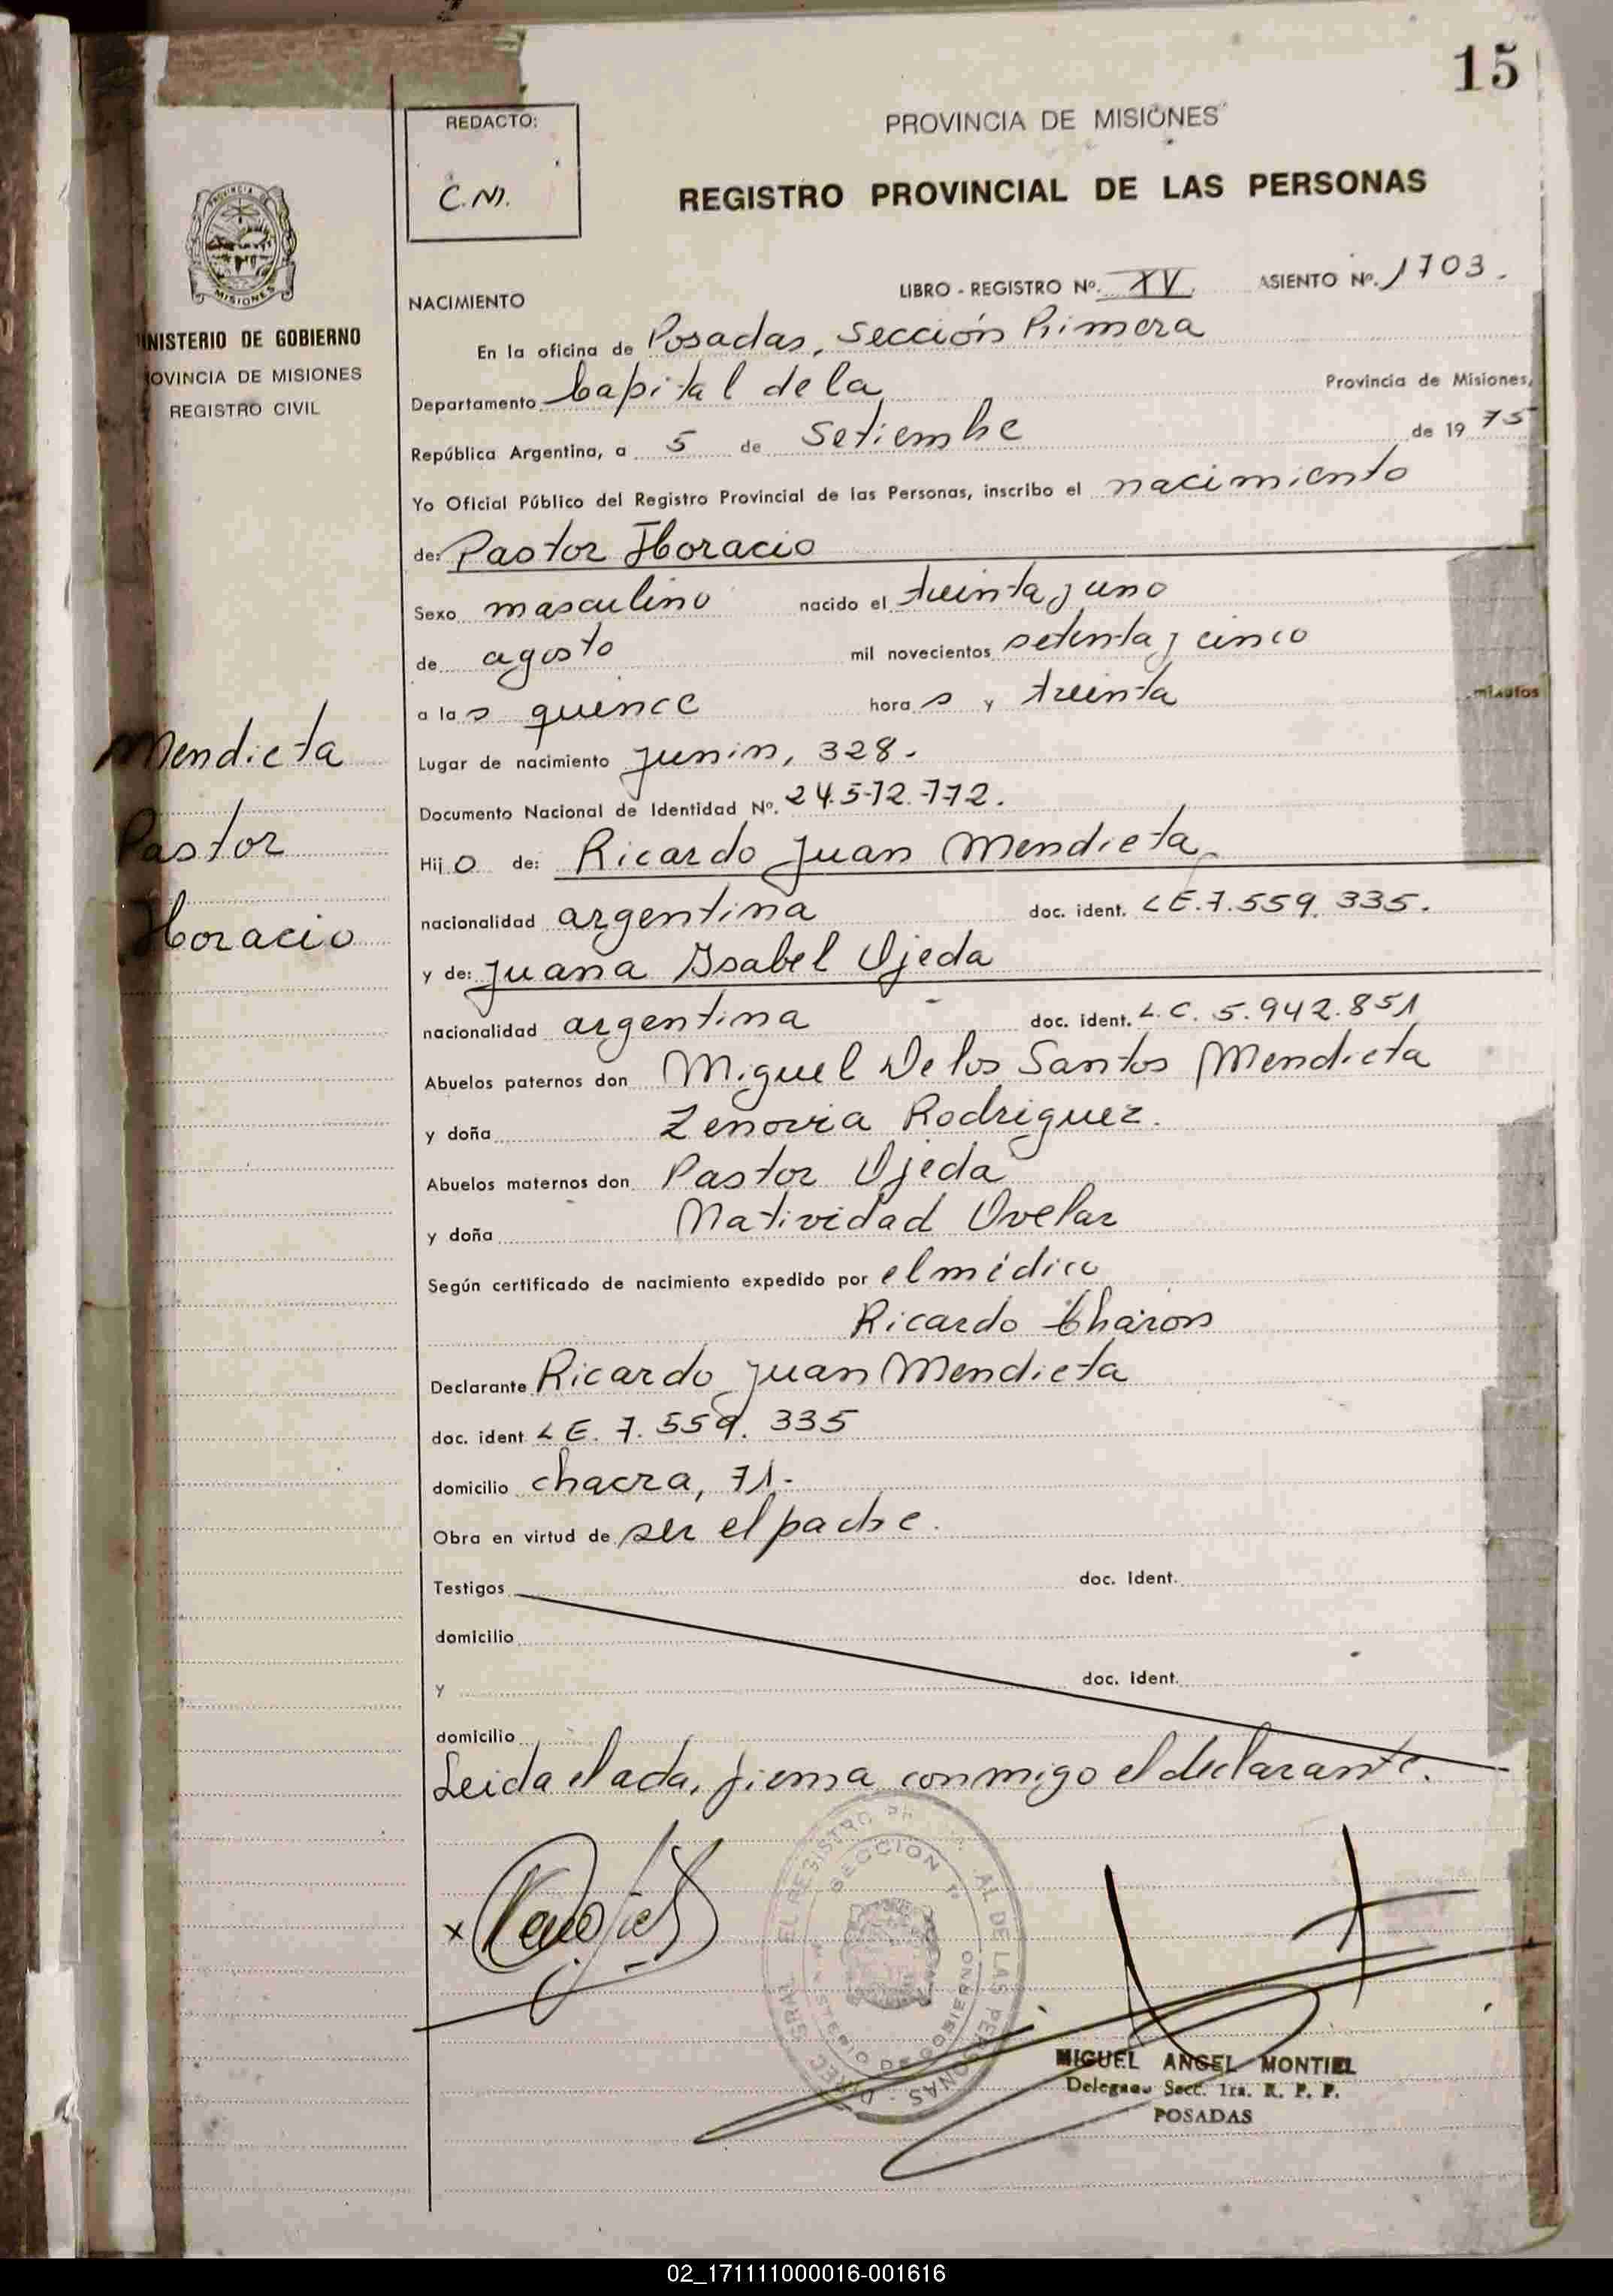 15
REDACTO:
C.M.
PROVINCIA DE MISIONES
REGISTRO PROVINCIAL DE LAS PERSONAS
MISIONES
LIBRO - REGISTRO Nº. XV ASIENTO Nº. 1703.
NACIMIENTO
INISTERIO DE GOBIERNO
OVINCIA DE MISIONES
REGISTRO CIVIL
En la oficina de Posadas, Sección Primera
Departamento Capital de la Provincia de Misiones,
República Argentina, a 5 de Setiembre de 19 75
Yo Oficial Público del Registro Provincial de las Personas, inscribo el nacimiento
de: Pastor Horacio
Sexo masculino nacido el treinta y uno
de agosto mil novecientos setenta y cinco
a la s quince hora s y treinta minutos
Mendieta
Pastor
Horacio
Lugar de nacimiento Junin, 328.
Documento Nacional de Identidad Nº. 24.572.772.
Hij o de: Ricardo Juan Mendieta
nacionalidad argentina doc. ident. LE. 7.559.335.
y de: Juana Isabel Ojeda
nacionalidad argentina doc. ident. L.C. 5.942.851
Abuelos paternos don Miguel De los Santos Mendieta
y doña Zenovia Rodriguez.
Abuelos maternos don Pastor Ojeda
y doña Natividad Ovelar
Según certificado de nacimiento expedido por el médico
Ricardo Charon
Declarante Ricardo Juan Mendieta
doc. ident LE. 7.559.335
domicilio chacra, 71.-
Obra en virtud de ser el padre.
Testigos doc. Ident.
domicilio
y doc. Ident.
domicilio
Leida el acta, firma conmigo el declarante.
x
SECCION 1ª
MIGUEL ANGEL MONTIEL
Delegado Secc. 1ra. R. P. P.
POSADAS
02_171111000016-001616